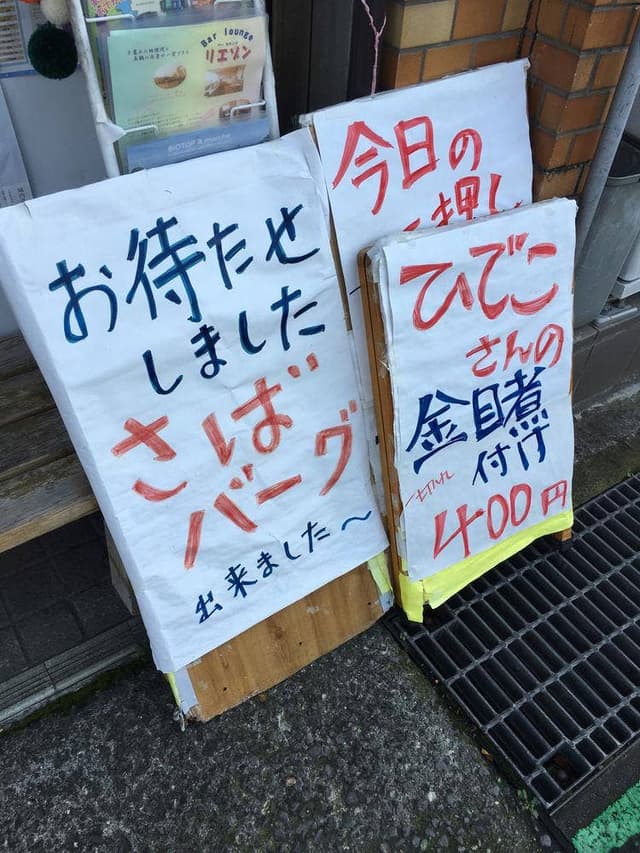 Bar lounge
リエゾン
BIOTOP à marche
お待たせ
しました
さば
バーグ
出来ました〜
今日の
押し
ひでこ
さんの
金目煮
付け
一切れ
400円